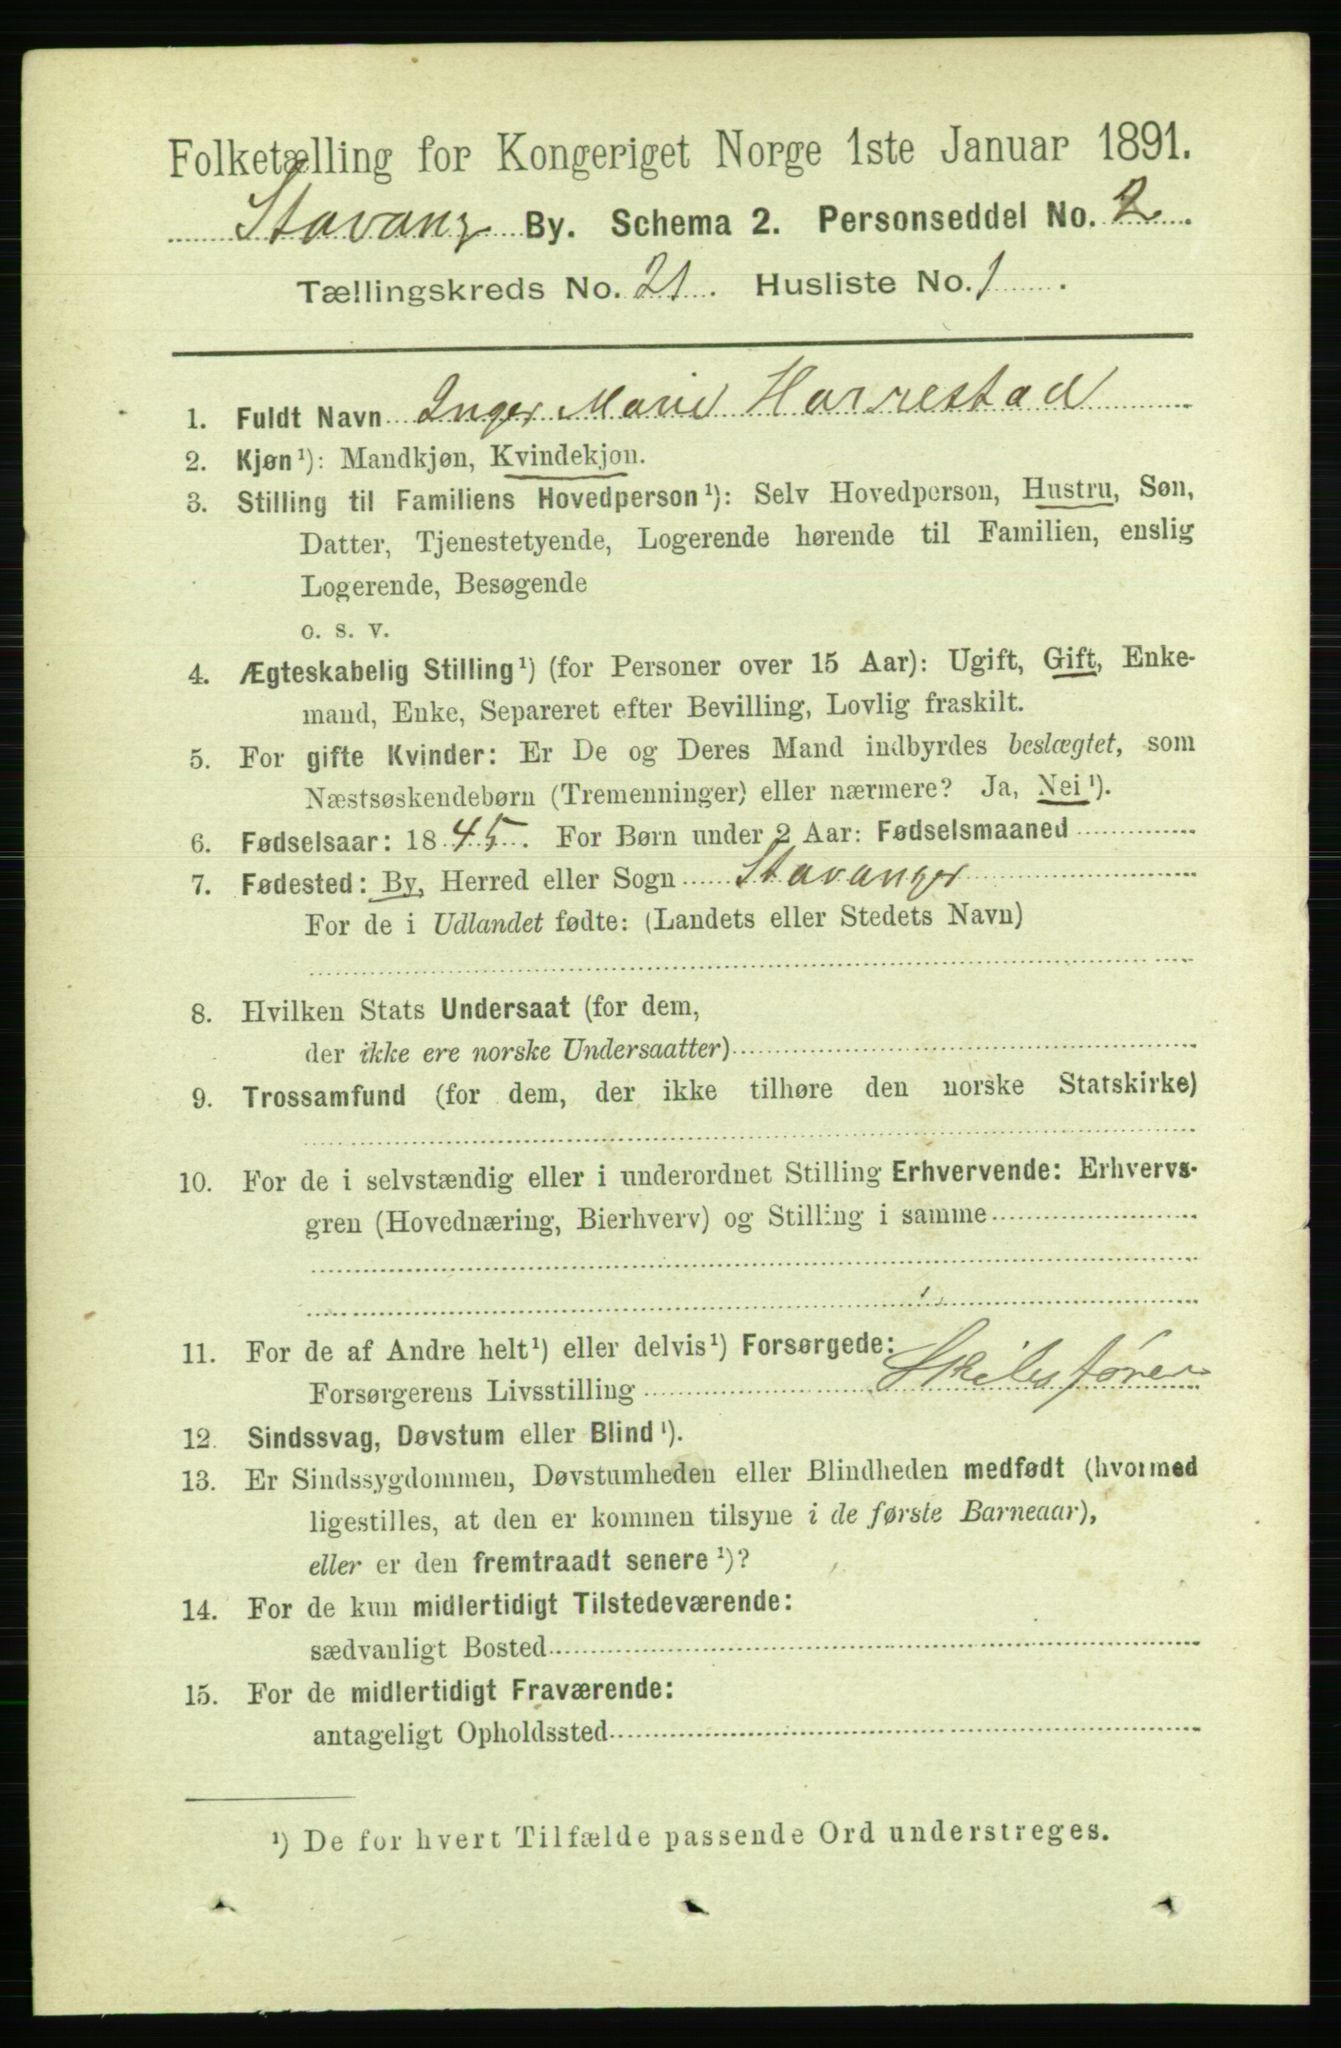 Folketælling for Kongeriget Norge 1ste Januar 1891.
Stavang By. Schema 2. Personseddel No. 2.
Tællingskreds No. 21. Husliste No. 1.
1. Fuldt Navn Inger Marie Harrestad
2. Kjøn¹): Mandkjøn, Kvindekjøn.
3. Stilling til Familiens Hovedperson¹): Selv Hovedperson, Hustru, Søn,
Datter, Tjenestetyende, Logerende hørende til Familien, enslig
Logerende, Besøgende
o. s. v.
4. Ægteskabelig Stilling¹) (for Personer over 15 Aar): Ugift, Gift, Enke-
mand, Enke, Separeret efter Bevilling, Lovlig fraskilt.
5. For gifte Kvinder: Er De og Deres Mand indbyrdes beslægtet, som
Næstsøskendebørn (Tremenninger) eller nærmere? Ja, Nei¹).
6. Fødselsaar: 1845. For Børn under 2 Aar: Fødselsmaaned
7. Fødested: By, Herred eller Sogn Stavanger
For de i Udlandet fødte: (Landets eller Stedets Navn)
8. Hvilken Stats Undersaat (for dem,
der ikke ere norske Undersaatter)
9. Trossamfund (for dem, der ikke tilhøre den norske Statskirke)
10. For de i selvstændig eller i underordnet Stilling Erhvervende: Erhvervs-
gren (Hovednæring, Bierhverv) og Stilling i samme
11. For de af Andre helt¹) eller delvis¹) Forsørgede:
Forsørgerens Livsstilling Skibsfører
12. Sindssvag, Døvstum eller Blind¹).
13. Er Sindssygdommen, Døvstumheden eller Blindheden medfødt (hvormed
ligestilles, at den er kommen tilsyne i de første Barneaar),
eller er den fremtraadt senere¹)?
14. For de kun midlertidigt Tilstedeværende:
sædvanligt Bosted
15. For de midlertidigt Fraværende:
antageligt Opholdssted
¹) De for hvert Tilfælde passende Ord understreges.